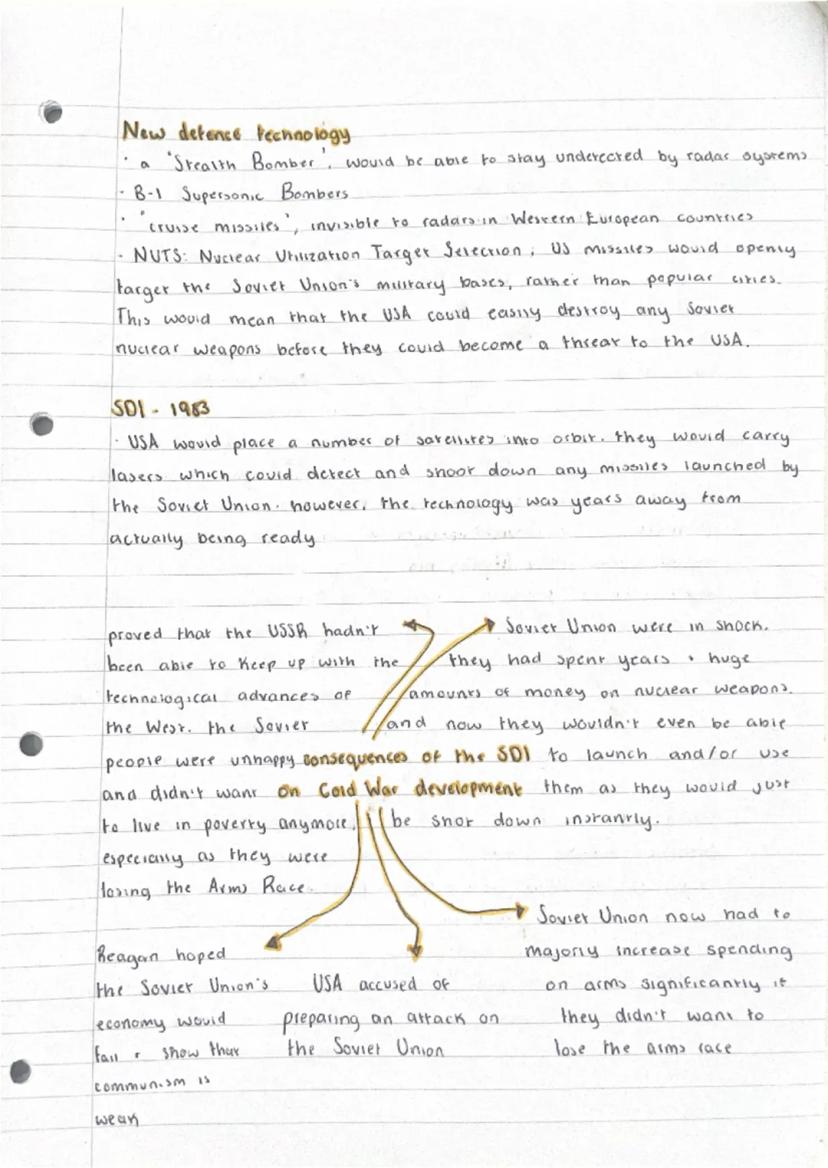 New defence technology
· a 'Stealth Bomber', would be able to stay undetected by radar systems
· B-1 Supersonic Bombers
· 'cruise missiles', invisible to radars in Western European countries
· NUTS: Nuclear Utilization Target Selection; US missiles would openly
target the Soviet Union's military bases, rather than popular cities.
This would mean that the USA could easily destroy any Soviet
nuclear weapons before they could become a threat to the USA.
SDI - 1983
· USA would place a number of satellites into orbit. they would carry
lasers which could detect and shoot down any missiles launched by
the Soviet Union. however, the technology was years away from
actually being ready
proved that the USSR hadn't
been able to keep up with the
technological advances of
the West. the Soviet
people were unhappy
and didn't want
to live in poverty anymore,
especially as they were
losing the Arms Race.
Soviet Union were in shock.
they had spent years + huge
amounts of money on nuclear weapons.
and now they wouldn't even be able
to launch and/or use
them as they would just
be shot down instantly.
consequences of the SDI
on Cold War development
Reagan hoped
the Soviet Union's
economy would
fail + show that
communism is
weak
USA accused of
preparing an attack on
the Soviet Union
Soviet Union now had to
majorly increase spending
on arms significantly if
they didn't want to
lose the arms race